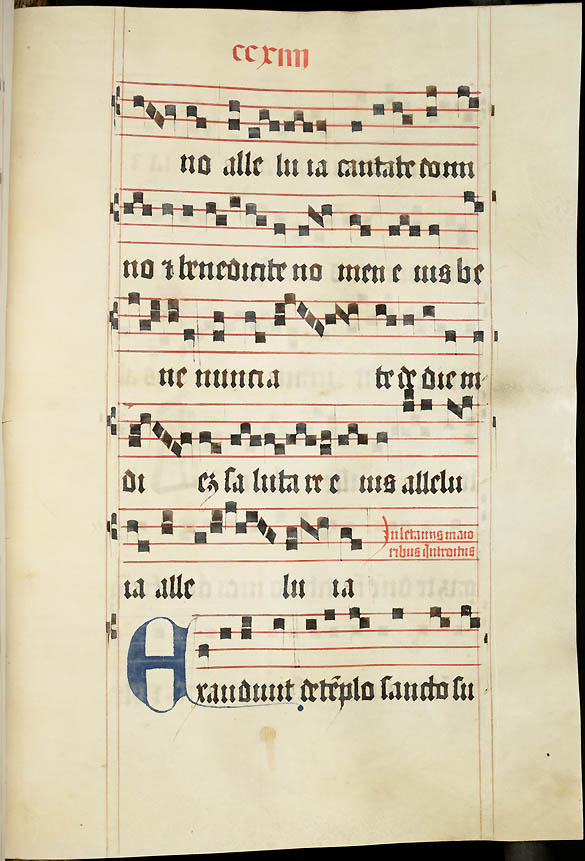 ccxiiii
no alle lu ia cantate domi
no ⁊ benedicite no men e ius be
ne nuncia te de die in
di eʒ sa luta re e ius allelu
ia alle lu ia
In letaniis maio
ribus Introitus
Exaudiuit de tēplo sancto su